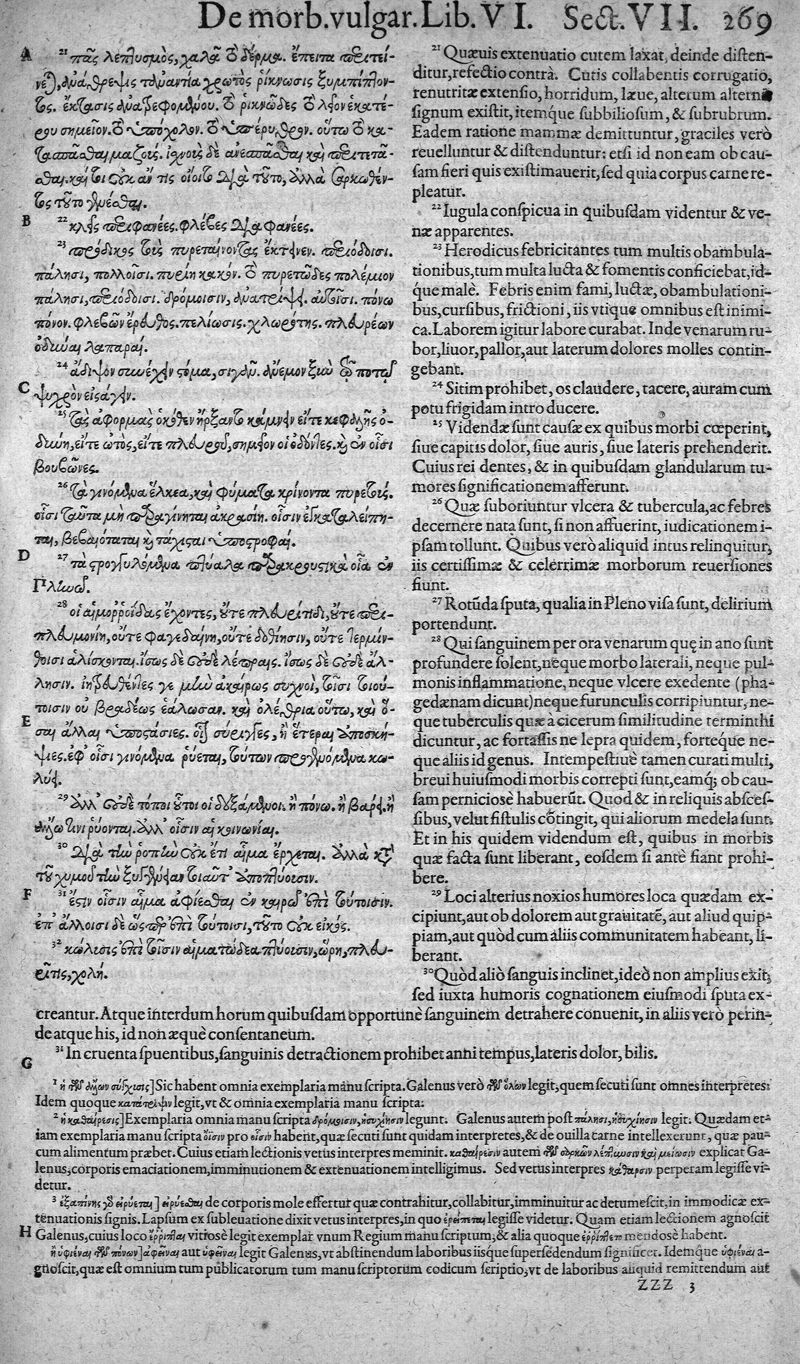 De morb. vulgar. Lib. VI. Sect. VII. 269
A
21 πᾶς λεπυσμὸς, χαλᾷ τὸ δέρμα. ἔπειτα
ἔκτασις τὸ ῥικνῶδες τὸ λεῖον
σημεῖον. τὸ ὑπόχολον. τὸ ὑπέρυθρον. οὕτω τὸ
μαζούς. ἰσχνοὺς δὲ
B
22 κληῗς περιφανέες. φλέβες διαφανέες.
23 πυρεταίνοντας ἔκτεινεν.
πάλησι, πολλοῖσι. πυρίη κακόν. τὸ πυρετῶδες πολέμιον
πάλησι, περιόδοισι. δρόμοισιν, πόνῳ
πόνον. φλεβῶν ἔρευθος. πελίωσις. χλωρότης. πλευρέων
ὀδύναι λαπαραί.
24 ἄδιψον συνέχειν στόμα, σιγᾶν. ἄνεμον ξὺν τῷ ποτῷ
ψυχρὸν εἰσάγειν.
C
25 τὰς ἀφορμὰς ὁκόθεν ἤρξαντο κάμνειν εἴτε κεφαλῆς ὀ-
δύνη, εἴτε ὠτὸς, εἴτε πλευροῦ, σημεῖον οἱ ὀδόντες. καὶ ἐν οἷσι
βουβῶνες.
26 τὰ γινόμενα ἕλκεα, καὶ φύματα κρίνοντα πυρετούς.
οἷσι ταῦτα μὴ παραγίνηται ἀκρασίη. οἷσιν ἐγκαταλείπη-
ται, βεβαιόταται καὶ τάχισται ὑποστροφαί.
D
27 τὰ στρογγυλούμενα πτύαλα παρακρουστικὰ οἷα ἐν
Πλίνῳ.
28 οἱ αἱμορροΐδας ἔχοντες, οὔτε πλευρίτιδι, οὔτε περι-
πλευμονίη, οὔτε φαγεδαίνῃ, οὔτε δοθιῆσιν, οὔτε τερμίν-
θοισι ἁλίσκονται. ἴσως δὲ οὐδὲ λέπραις. ἴσως δὲ οὐδὲ ἄλ-
λῃσιν. ἰητρευθέντες γε μὴν ἀκαίρως συχνοὶ, τοῖσι τοιού-
τοισιν οὐ βραδέως ἑάλωσαν. καὶ ὀλέθρια οὕτω, καὶ ὅ-
E
σαι ἄλλαι ἀποστάσιες. οἷον σύριγγες, ἢ ἕτεραι
ἐφ' οἷσι γινόμενα ῥύεται, τούτων προγενόμενα κω-
λύει.
29 ἄλλου δὲ τόποι οὗτοι οἱ δεξάμενοι. ἢ πόνῳ. ἢ βάρει. ἢ
ἄλλῳ τινὶ ῥύονται. ἄλλ' οἷσιν αἱ κοινωνίαι.
30 διὰ τὴν ῥοπὴν οὐκ ἔτι αἷμα ἔρχεται. ἀλλὰ κατὰ
τοῦ χυμοῦ τὴν ξυγγένειαν τοιαῦτ' ἀποπτύουσιν.
F
31 ἔστιν οἷσιν αἷμα ἀφίεσθαι ἐν καιρῷ ἐπὶ τούτοισιν.
ἐπ' ἄλλοισι δὲ ὥσπερ ἐπὶ τούτοισι, τοῦτο οὐκ εἰκός.
32 κώλυσις ἐπὶ τοῖσιν αἱματώδεα πτύουσιν, ὥρη, πλευ-
ρῖτις, χολή.
21 Quæuis extenuatio cutem laxat, deinde disten-
ditur, refectio contrà. Cutis collabentis corrugatio,
renutritæ extensio, horridum, læue, alterum alterius
signum existit, itemque subbiliosum, & subrubrum.
Eadem ratione mammæ demittuntur, graciles verò
reuelluntur & distenduntur: etsi id non eam ob cau-
sam fieri quis existimauerit, sed quia corpus carne re-
pleatur.
22 Iugula conspicua in quibusdam videntur & ve-
næ apparentes.
23 Herodicus febricitantes tum multis obambula-
tionibus, tum multa lucta & fomentis conficiebat, id-
que malè. Febris enim fami, luctæ, obambulationi-
bus, cursibus, frictioni, iis vtique omnibus est inimi-
ca. Laborem igitur labore curabat. Inde venarum ru-
bor, liuor, pallor, aut laterum dolores molles contin-
gebant.
24 Sitim prohibet, os claudere, tacere, auram cum
potu frigidam intro ducere.
25 Videndæ sunt causæ ex quibus morbi cœperint,
siue capitis dolor, siue auris, siue lateris prehenderit.
Cuius rei dentes, & in quibusdam glandularum tu-
mores significationem afferunt.
26 Quæ suboriuntur vlcera & tubercula, ac febres
decernere nata sunt, si non affuerint, iudicationem i-
psam tollunt. Quibus verò aliquid intus relinquitur,
iis certissimæ & celerrimæ morborum reuersiones
fiunt.
27 Rotūda sputa, qualia in Pleno visa sunt, delirium
portendunt.
28 Qui sanguinem per ora venarum quę in ano sunt
profundere solent, neque morbo laterali, neque pul-
monis inflammatione, neque vlcere exedente (pha-
gedænam dicunt) neque furunculis corripiuntur, ne-
que tuberculis quæ à cicerum similitudine terminthi
dicuntur, ac fortassis ne lepra quidem, forteque ne-
que aliis id genus. Intempestiuè tamen curati multi,
breui huiusmodi morbis correpti sunt, eamq; ob cau-
sam perniciosè habuerūt. Quod & in reliquis absces-
sibus, velut fistulis cōtingit, qui aliorum medela sunt.
Et in his quidem videndum est, quibus in morbis
quæ facta sunt liberant, eosdem si antè fiant prohi-
bere.
29 Loci alterius noxios humores loca quædam ex-
cipiunt, aut ob dolorem aut grauitatē, aut aliud quip-
piam, aut quòd cum aliis communitatem habeant, li-
berant.
30 Quòd aliò sanguis inclinet, ideò non amplius exit,
sed iuxta humoris cognationem eiusmodi sputa ex-
creantur. Atque interdum horum quibusdam opportunè sanguinem detrahere conuenit, in aliis verò perin-
de atque his, id non æquè consentaneum.
G
31 In cruenta spuentibus, sanguinis detractionem prohibet anni tempus, lateris dolor, bilis.
1 ἢ σύγχισις] Sic habent omnia exemplaria manu scripta. Galenus verò legit, quem secuti sunt omnes interpretes:
Idem quoque legit, vt & omnia exemplaria manu scripta:
2 ἢ καθαίρεσις] Exemplaria omnia manu scripta legunt. Galenus autem post legit. Quædam et-
iam exemplaria manu scripta pro habent, quæ secuti sunt quidam interpretes, & de ouilla carne intellexerunt, quæ pau-
cum alimentum præbet. Cuius etiam lectionis vetus interpres meminit. καθαίρεσιν autem explicat Ga-
lenus, corporis emaciationem, imminutionem & extenuationem intelligimus. Sed vetus interpres κάθαρσιν perperam legisse vi-
detur.
3 de corporis mole effertur quæ contrahitur, collabitur, imminuitur ac detumescit, in immodicæ ex-
tenuationis signis. Lapsum ex subleuatione dixit vetus interpres, in quo legisse videtur. Quam etiam lectionem agnoscit
H
Galenus, cuius loco vitiosè legit exemplar vnum Regium manu scriptum, & alia quoque mendosè habent.
aut legit Galenus, vt abstinendum laboribus iisque supersedendum significet. Idemque a-
gnoscit, quæ est omnium tum publicatorum tum manu scriptorum codicum scriptio, vt de laboribus aliquid remittendum aut
ZZZ 3